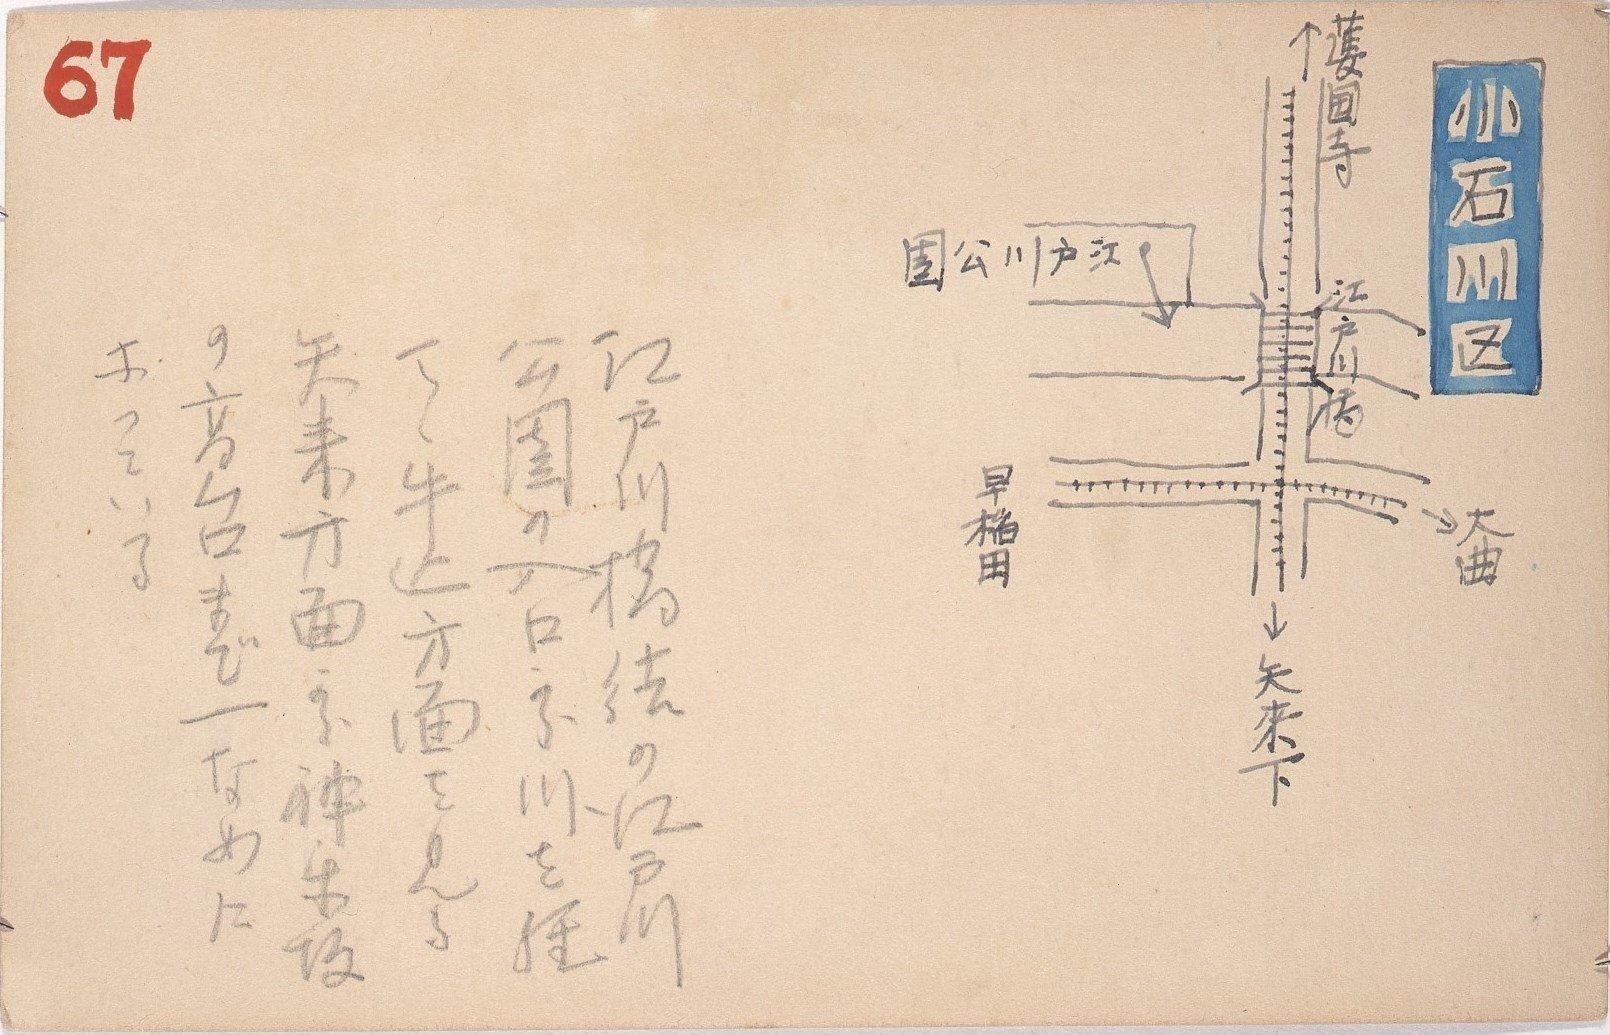 67
小石川区
護国寺
江戸川公園
江戸川橋
大曲
早稲田
矢来下
江戸川橋結の江戸川
公園の入口から川を経
てゝ牛込方面を見る
矢来方面から神楽坂
の高台まで一なめに
なっている